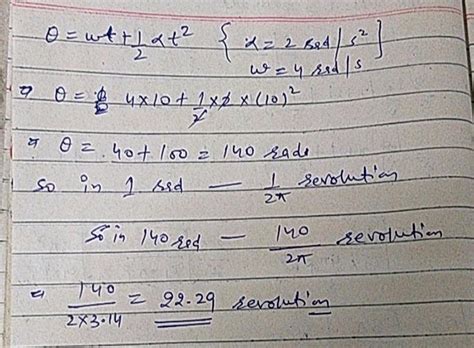 θ = ωt + 1/2 αt² { α = 2 rad/s²
ω = 4 rad/s }
⇒ θ = 4×10 + 1/2 × 2 × (10)²
⇒ θ = 40 + 100 = 140 rads
So in 1 rad — 1/2π revolution
So in 140 rad — 140/2π revolution
= 140/2×3.14 = 22.29 revolution